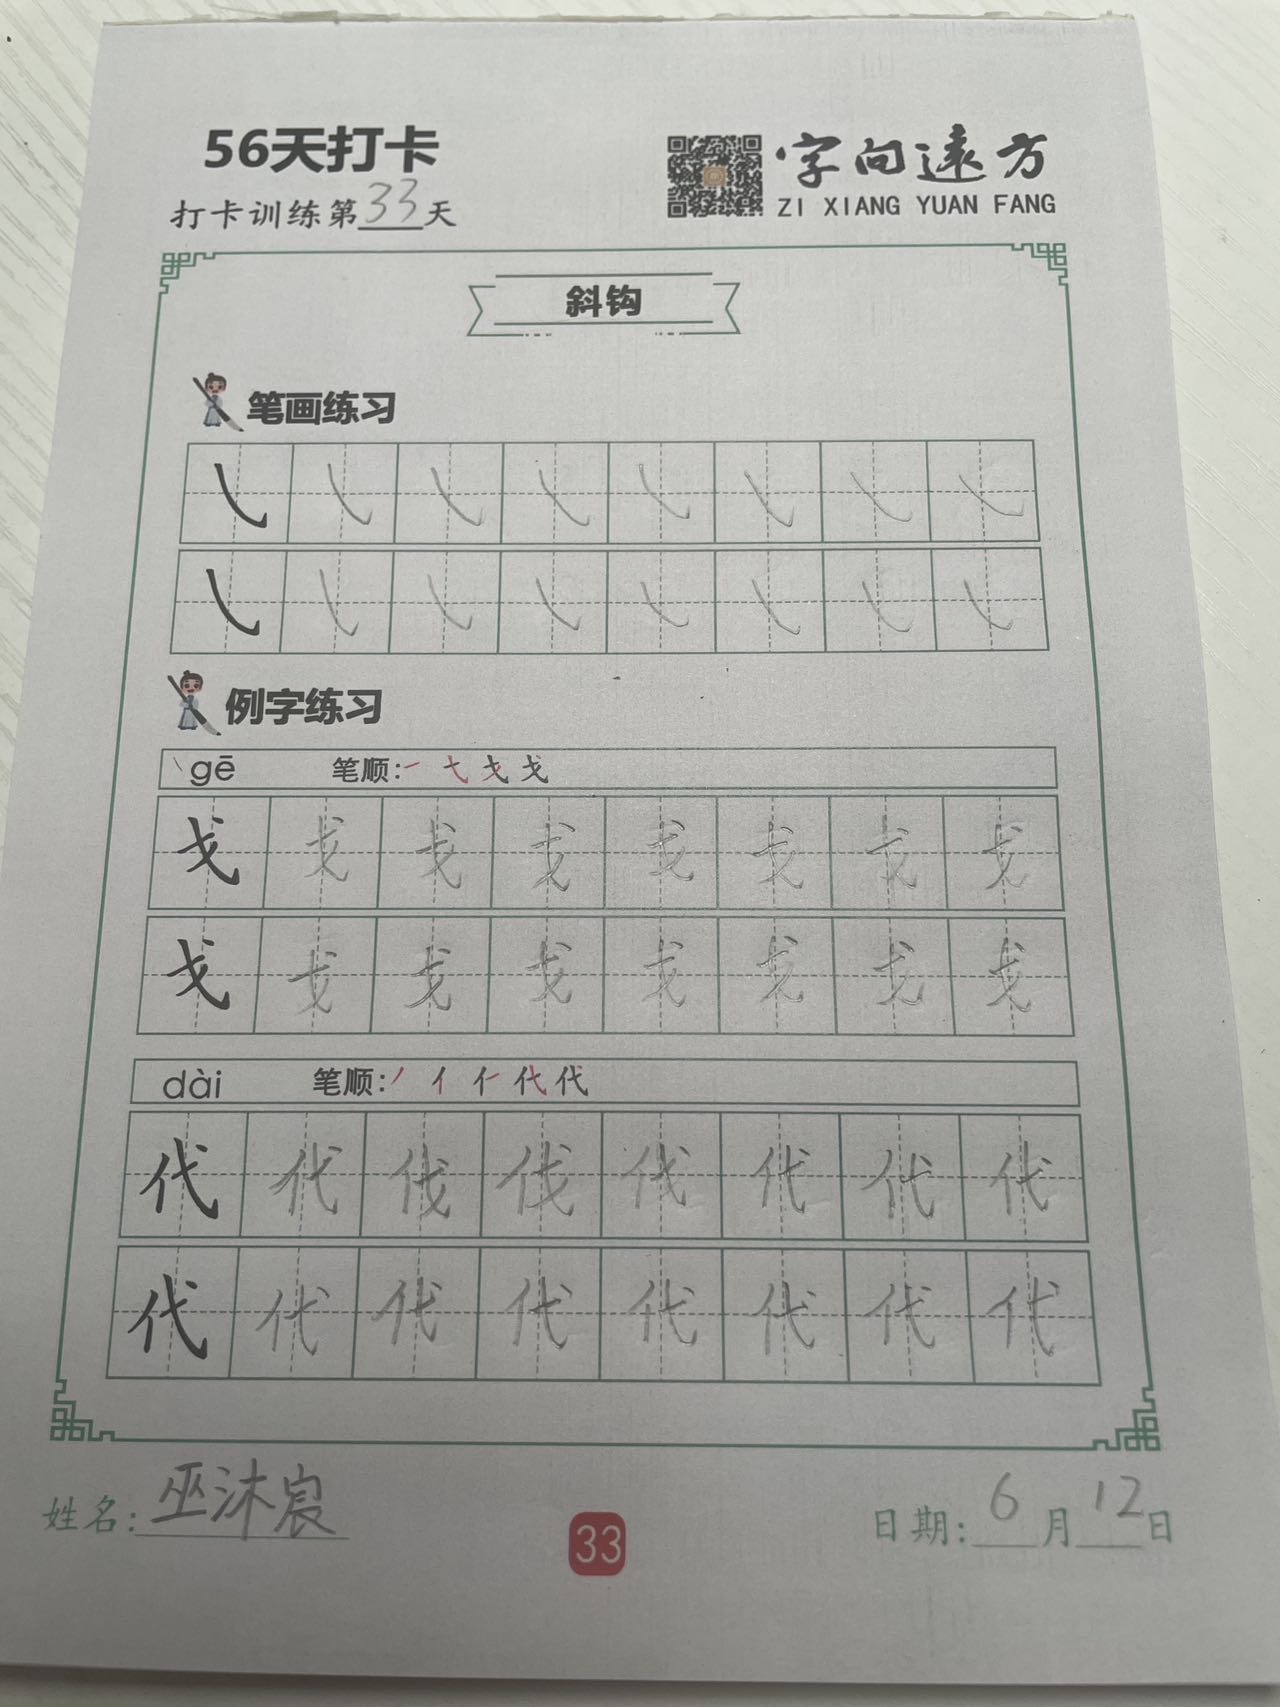 56天打卡
打卡训练第33天
字向遠方
ZI XIANG YUAN FANG
斜钩
笔画练习
㇂ ㇂ ㇂ ㇂ ㇂ ㇂ ㇂ ㇂
㇂ ㇂ ㇂ ㇂ ㇂ ㇂ ㇂ ㇂
例字练习
gē 笔顺: 一 弋 戈 戈
戈 戈 戈 戈 戈 戈 戈 戈
戈 戈 戈 戈 戈 戈 戈 戈
dài 笔顺: 丿 亻 亻 代 代
代 代 伐 伐 伐 代 代 代
代 代 代 代 代 代 代 代
姓名: 巫沐宸
33
日期: 6月12日